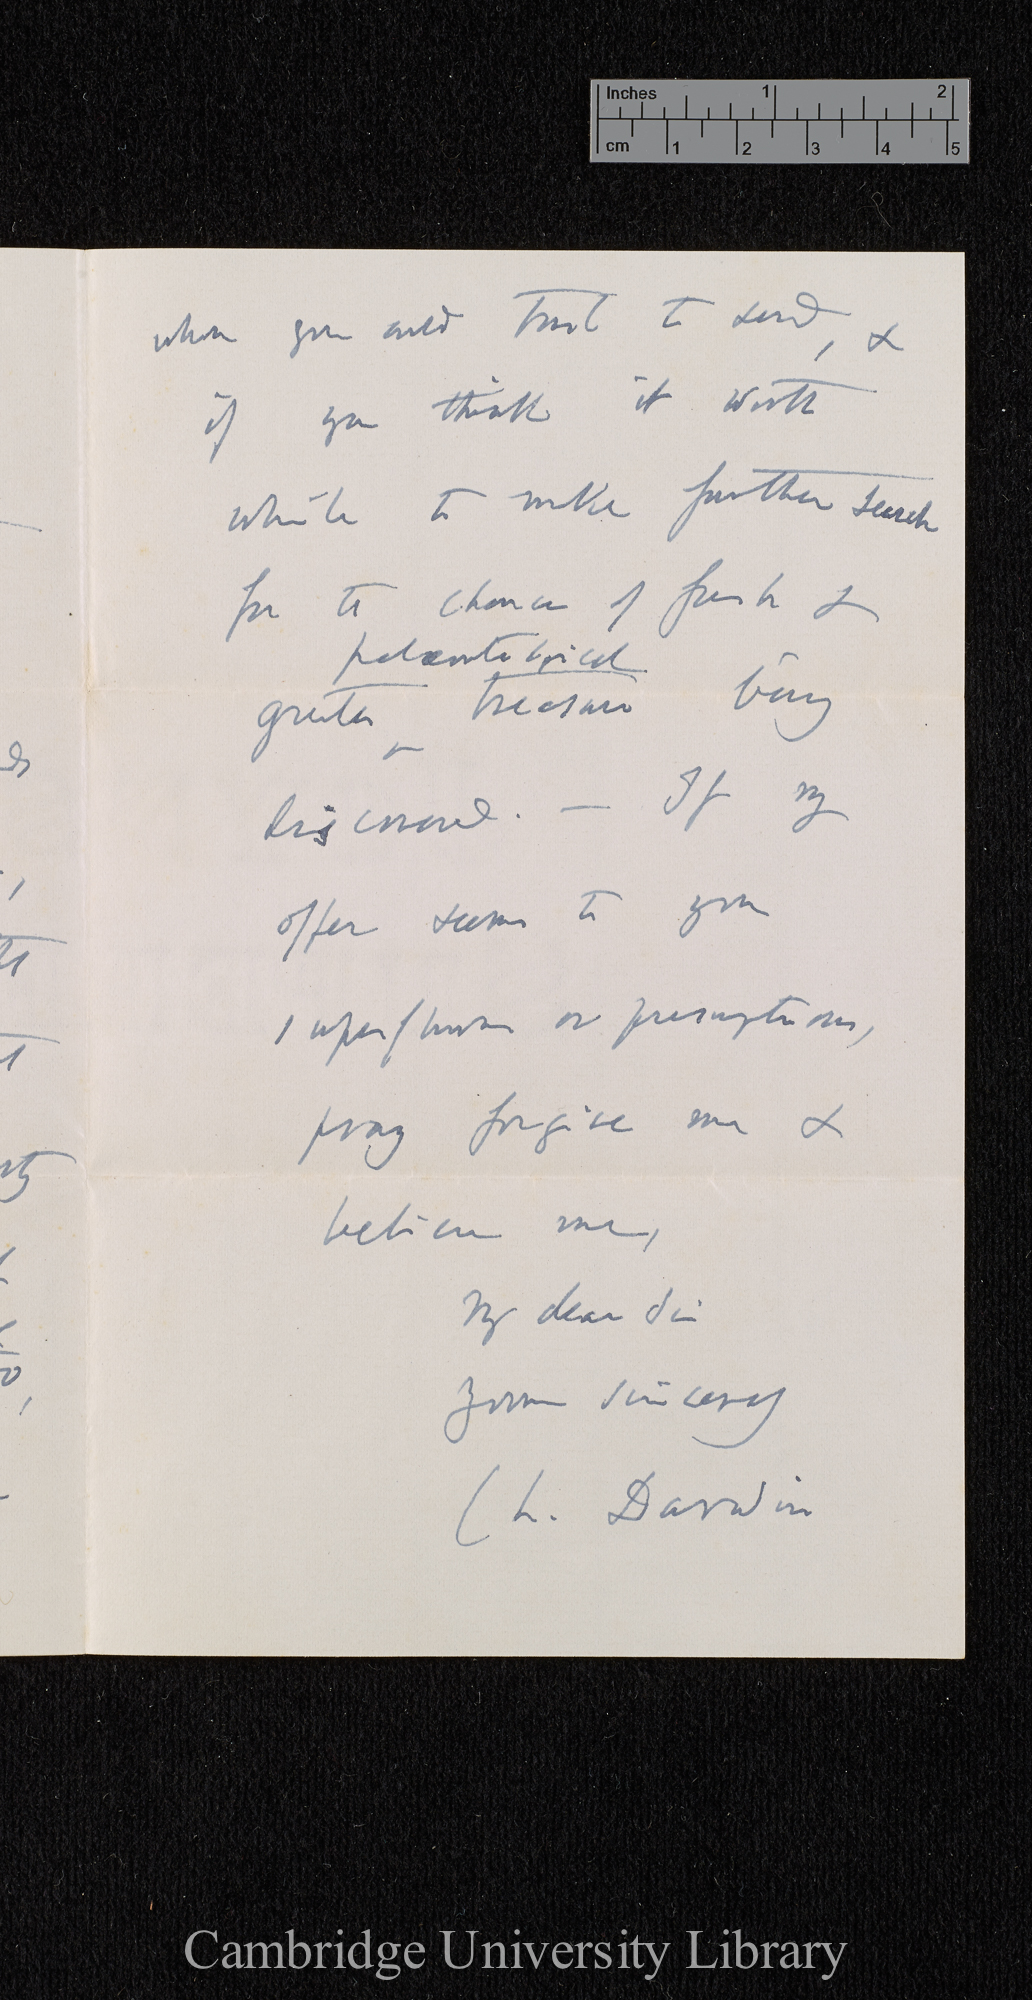 Inches 1 2
cm 1 2 3 4 5
whom you could trust to send, &
if you think it worth
while to make further search
for the chance of fresh &
palæontological
greater ^ treasure being
discovered. — If my
offer seems to you
superfluous or presumptuous,
pray forgive me &
believe me,
My dear Sir
Yours sincerely
Ch. Darwin
Cambridge University Library